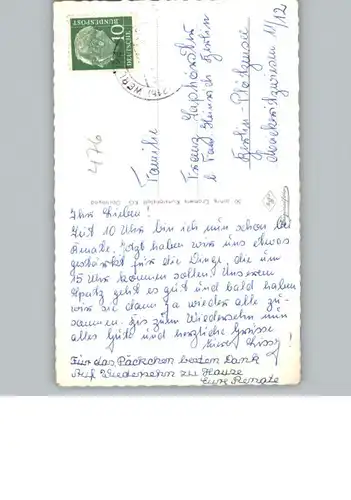 10
DEUTSCHE
BUNDESPOST
WERL
476
Familie
Franz
b
Heinrich Berlin
Berlin - Plötzensee
11/12
30 Jahre Cramers Kunstanstalt KG. Dortmund
Ihr Lieben!
Seit 10 Uhr bin ich nun schon bei
Renate. Jetzt haben wir uns etwas
gestärkt für die Dinge, die um
15 Uhr kommen sollen. Unserem
Spatz geht es gut und bald haben
wir sie dann ja wieder alle zu-
sammen. Bis zum Wiedersehn nun
alles Gute und herzliche Grüsse
Eure Sissy!
Für das Päckchen besten Dank
Auf Wiedersehn zu Hause
Eure Renate